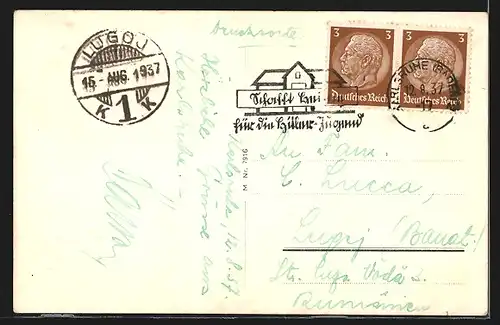 Drucksache
LUGOJ
15 - AUG. 1937
K 1 K
3 3
Deutsches Reich Deutsches Reich
KARLSRUHE (BADEN)
12.8.37
Schafft Hei-
für die Hitler-Jugend
M Nr. 7916
Karlsruhe, 12.8.37.
Herzliche Grüße aus
Karlsruhe. -
An Fam.
C. Lucca,
Lugoj (Banat)
Str. Cuza Vodă 2.
Rumänien